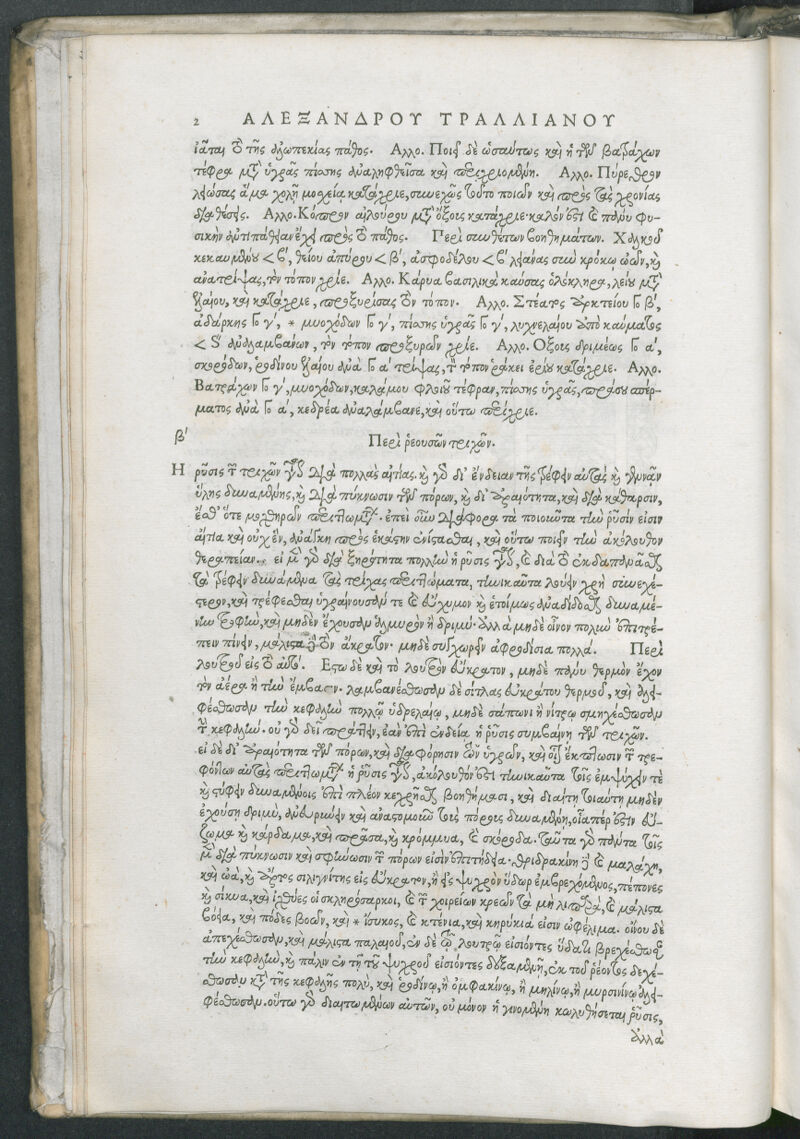 2 ΑΛΕΞΑΝΔΡΟΥ ΤΡΑΛΛΙΑΝΟΥ
ἰᾶται τὸ τῆς ἀλωπεκίας πάθος. Αλλο. Ποιεῖ δὲ ὡσαύτως καὶ ἡ τῶν βατράχων
τέφρα μετὰ ὑγρᾶς πίσσης ἀναληφθεῖσα καὶ ἐπιχριομένη. Αλλο. Πύρεθρον
λειώσας ἅμα χολῇ μοσχείᾳ κατάχριε, συνεχῶς τοῦτο ποιῶν καὶ πρὸς τὰς χρονίας
διαθέσεις. Αλλο. Κόπρον αἰλούρου μετὰ ὄξους κατάχριε· καλόν ἐστι καὶ πάνυ φυσικὴν
ἀντιπάθειαν ἔχει πρὸς τὸ πάθος. Περὶ συνθέτων βοηθημάτων. Χαλκοῦ
κεκαυμένου < β', θείου ἀπύρου < β', ἀσφοδέλου < β' λειάνας σὺν κρόκῳ ὠῶν, καὶ
ἀνατρίψας, τὸν τόπον χρίε. Αλλο. Κάρυα βασιλικὰ καύσας ὁλόκληρα, λείου μετὰ
ἐλαίου, καὶ κατάχριε, προξυρίσας τὸν τόπον. Αλλο. Στέατος ἀρκτείου Γο β',
ἀδάρκης Γο γ', * μυοχόδων Γο γ', πίσσης ὑγρᾶς Γο γ', λυχνελαίου ἀπὸ καύματος
< S' ἀναλαμβάνων, τὸν τόπον προξυρῶν χρίε. Αλλο. Οξους δριμέως Γο α',
σκορόδων, ῥοδίνου ἐλαίου ἀνὰ Γο α' τρίψας, τὸν τόπον ῥάκει ἐρίου κατάχριε. Αλλο.
Βατράχων Γο γ', μυοχόδων, καλάμου φλοιοῦ τέφραν, πίσσης ὑγρᾶς, πράσου σπέρματος
ἀνὰ Γο α', κεδρέᾳ ἀναλάμβανε, καὶ οὕτω ἐπίχριε.
β' Περὶ ῥεουσῶν τριχῶν.
Η ῥῦσις τῶν τριχῶν γίνεται διὰ πολλὰς αἰτίας. καὶ γὰρ δι' ἔνδειαν τῆς τρέφειν αὐτὰς καὶ γεννᾶν
ὕλης δυναμένης, καὶ διὰ πύκνωσιν τῶν πόρων, καὶ δι' ἀραιότητα, καὶ διὰ κάθαρσιν,
ἔσθ' ὅτε μοχθηρῶν περιττωμάτων. ἐπεὶ οὖν διάφορα τὰ ποιοῦντα τὴν ῥύσιν εἰσὶν
αἴτια καὶ οὐχ ἓν, ἀνάγκη πρὸς ἕκαστην ἐνίστασθαι, καὶ οὕτω ποιεῖν τὴν ἀκόλουθον
θεραπείαν. εἰ μὲν γὰρ διὰ ξηρότητα πολλὴν ἡ ῥῦσις γίνεται, καὶ διὰ τὸ ἐκδαπανᾶσθαι
τὰ τρέφειν δυνάμενα τὰς τρίχας περιττώματα, τηνικαῦτα λούειν χρὴ συνεχέστερον,
καὶ τρέφεσθαι ὑγραίνουσάν τε καὶ εὔχυμον καὶ ἑτοίμως ἀναδίδοσθαι δυναμένην
τροφὴν, καὶ μηδὲν ἔχουσαν ἁλμυρὸν ἢ δριμύ· ἀλλὰ μηδὲ οἶνον πολὺν ἐπιτρέπειν
πίνειν, μάλιστα δὲ τὸν ἄκρατον· μηδὲ συγχωρεῖν ἀφροδίσια πολλά. Περὶ
λουτροῦ εἰς τὸ αὐτό. Εστω δὲ καὶ τὸ λουτρὸν εὔκρατον, μηδὲ πάνυ θερμὸν ἔχον
τὸν ἀέρα ἢ τὴν ἔμβασιν. λαμβανέσθωσαν δὲ σίτλας εὐκράτου θερμοῦ, καὶ ἀλειφέσθωσαν
τὴν κεφαλὴν πολλῷ ὑδρελαίῳ, μηδὲ σάπωνι ἢ νίτρῳ σμηχέσθωσαν
τὴν κεφαλήν. οὐ γὰρ δεῖ πράττειν, ἐὰν ἐπὶ ἐνδείᾳ ἡ ῥῦσις συμβαίνῃ τῶν τριχῶν.
εἰ δὲ δι' ἀραιότητα τῶν πόρων, καὶ διαφόρησιν τῶν ὑγρῶν, καὶ οἷον ἔκπτωσιν τῶν τρεφόντων
αὐτὰς περιττωμάτων ἡ ῥῦσις γίνεται, ἀκόλουθόν ἐστι τηνικαῦτα τοῖς ἐμψύχειν τε
καὶ στύφειν δυναμένοις ἐπὶ πλέον κεχρῆσθαι βοηθήμασι, καὶ διαίτῃ τοιαύτῃ μηδὲν
ἐχούσῃ δριμὺ, ἀνευρύνειν καὶ ἀναστομοῦν τοὺς πόρους δυναμένῃ, οἷάπερ ἐστὶν εὔζωμα
καὶ κάρδαμα, καὶ πράσα, καὶ κρόμμυα, καὶ σκόροδα. ταῦτα γὰρ πάντα τοῖς
μὲν διὰ πύκνωσιν καὶ σφήνωσιν τῶν πόρων εἰσὶν ἐπιτήδεια· θριδακίνη δὲ καὶ μαλάχη,
καὶ ὠὰ, καὶ ἄρτος σιλιγνίτης εἰς εὔκρατον, ἢ εἰς ψυχρὸν ὕδωρ ἐμβρεχόμενος, πέπονες
καὶ σίκυα, καὶ ἰχθύες οἱ σκληρόσαρκοι, καὶ τῶν χοιρείων κρεῶν τὰ μὴ λιπαρὰ, καὶ μάλιστα
βόεια, καὶ πόδες βοῶν, καὶ * ἴσυκος, καὶ κτένια, καὶ κηρύκιά εἰσιν ὠφέλιμα. οἴνου δὲ
ἀπεχέσθωσαν, καὶ μάλιστα παλαιοῦ, ἐν δὲ τῷ λουτρῷ εἰσιόντες ὕδατι βρεχέσθωσαν
τὴν κεφαλὴν, καὶ πάλιν ἐν τῇ τοῦ ψυχροῦ εἰσιόντες δεξαμενῇ, ἐκ τοῦ ῥέοντος δεχέσθωσαν
κατὰ τῆς κεφαλῆς πολὺ, καὶ ῥοδίνῳ, ἢ ὀμφακίνῳ, ἢ μηλίνῳ, ἢ μυρσινίνῳ ἀλειφέσθωσαν.
οὕτω γὰρ διαιτωμένων αὐτῶν, οὐ μόνον ἡ γινομένη κωλυθήσεται ῥῦσις,
ἀλλὰ